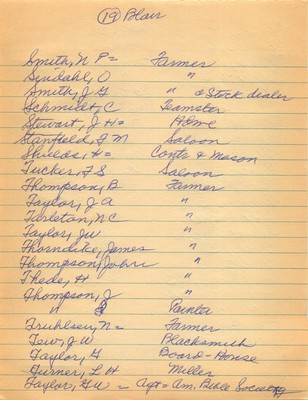 (19) Blair
Smith, N P = Farmer
Sindahl, O "
Smith, J G " & Stock dealer
Schmidt, C Teamster
Stewart, J H = Home
Stanfield, F M Saloon
Shields, H = Contr & Mason
Tucker, F S Saloon
Thompson, B Farmer
Taylor, J A "
Tarleton, N C "
Taylor, J W "
Thorndike, James "
Thompson, John "
Thede, H "
Thompson, J "
" B Painter
Truhlsen, N = Farmer
Tew, J W Blacksmith
Taylor, G Board-House
Turner, L H Miller
Taylor, G W = Agt = Am. Bible Society